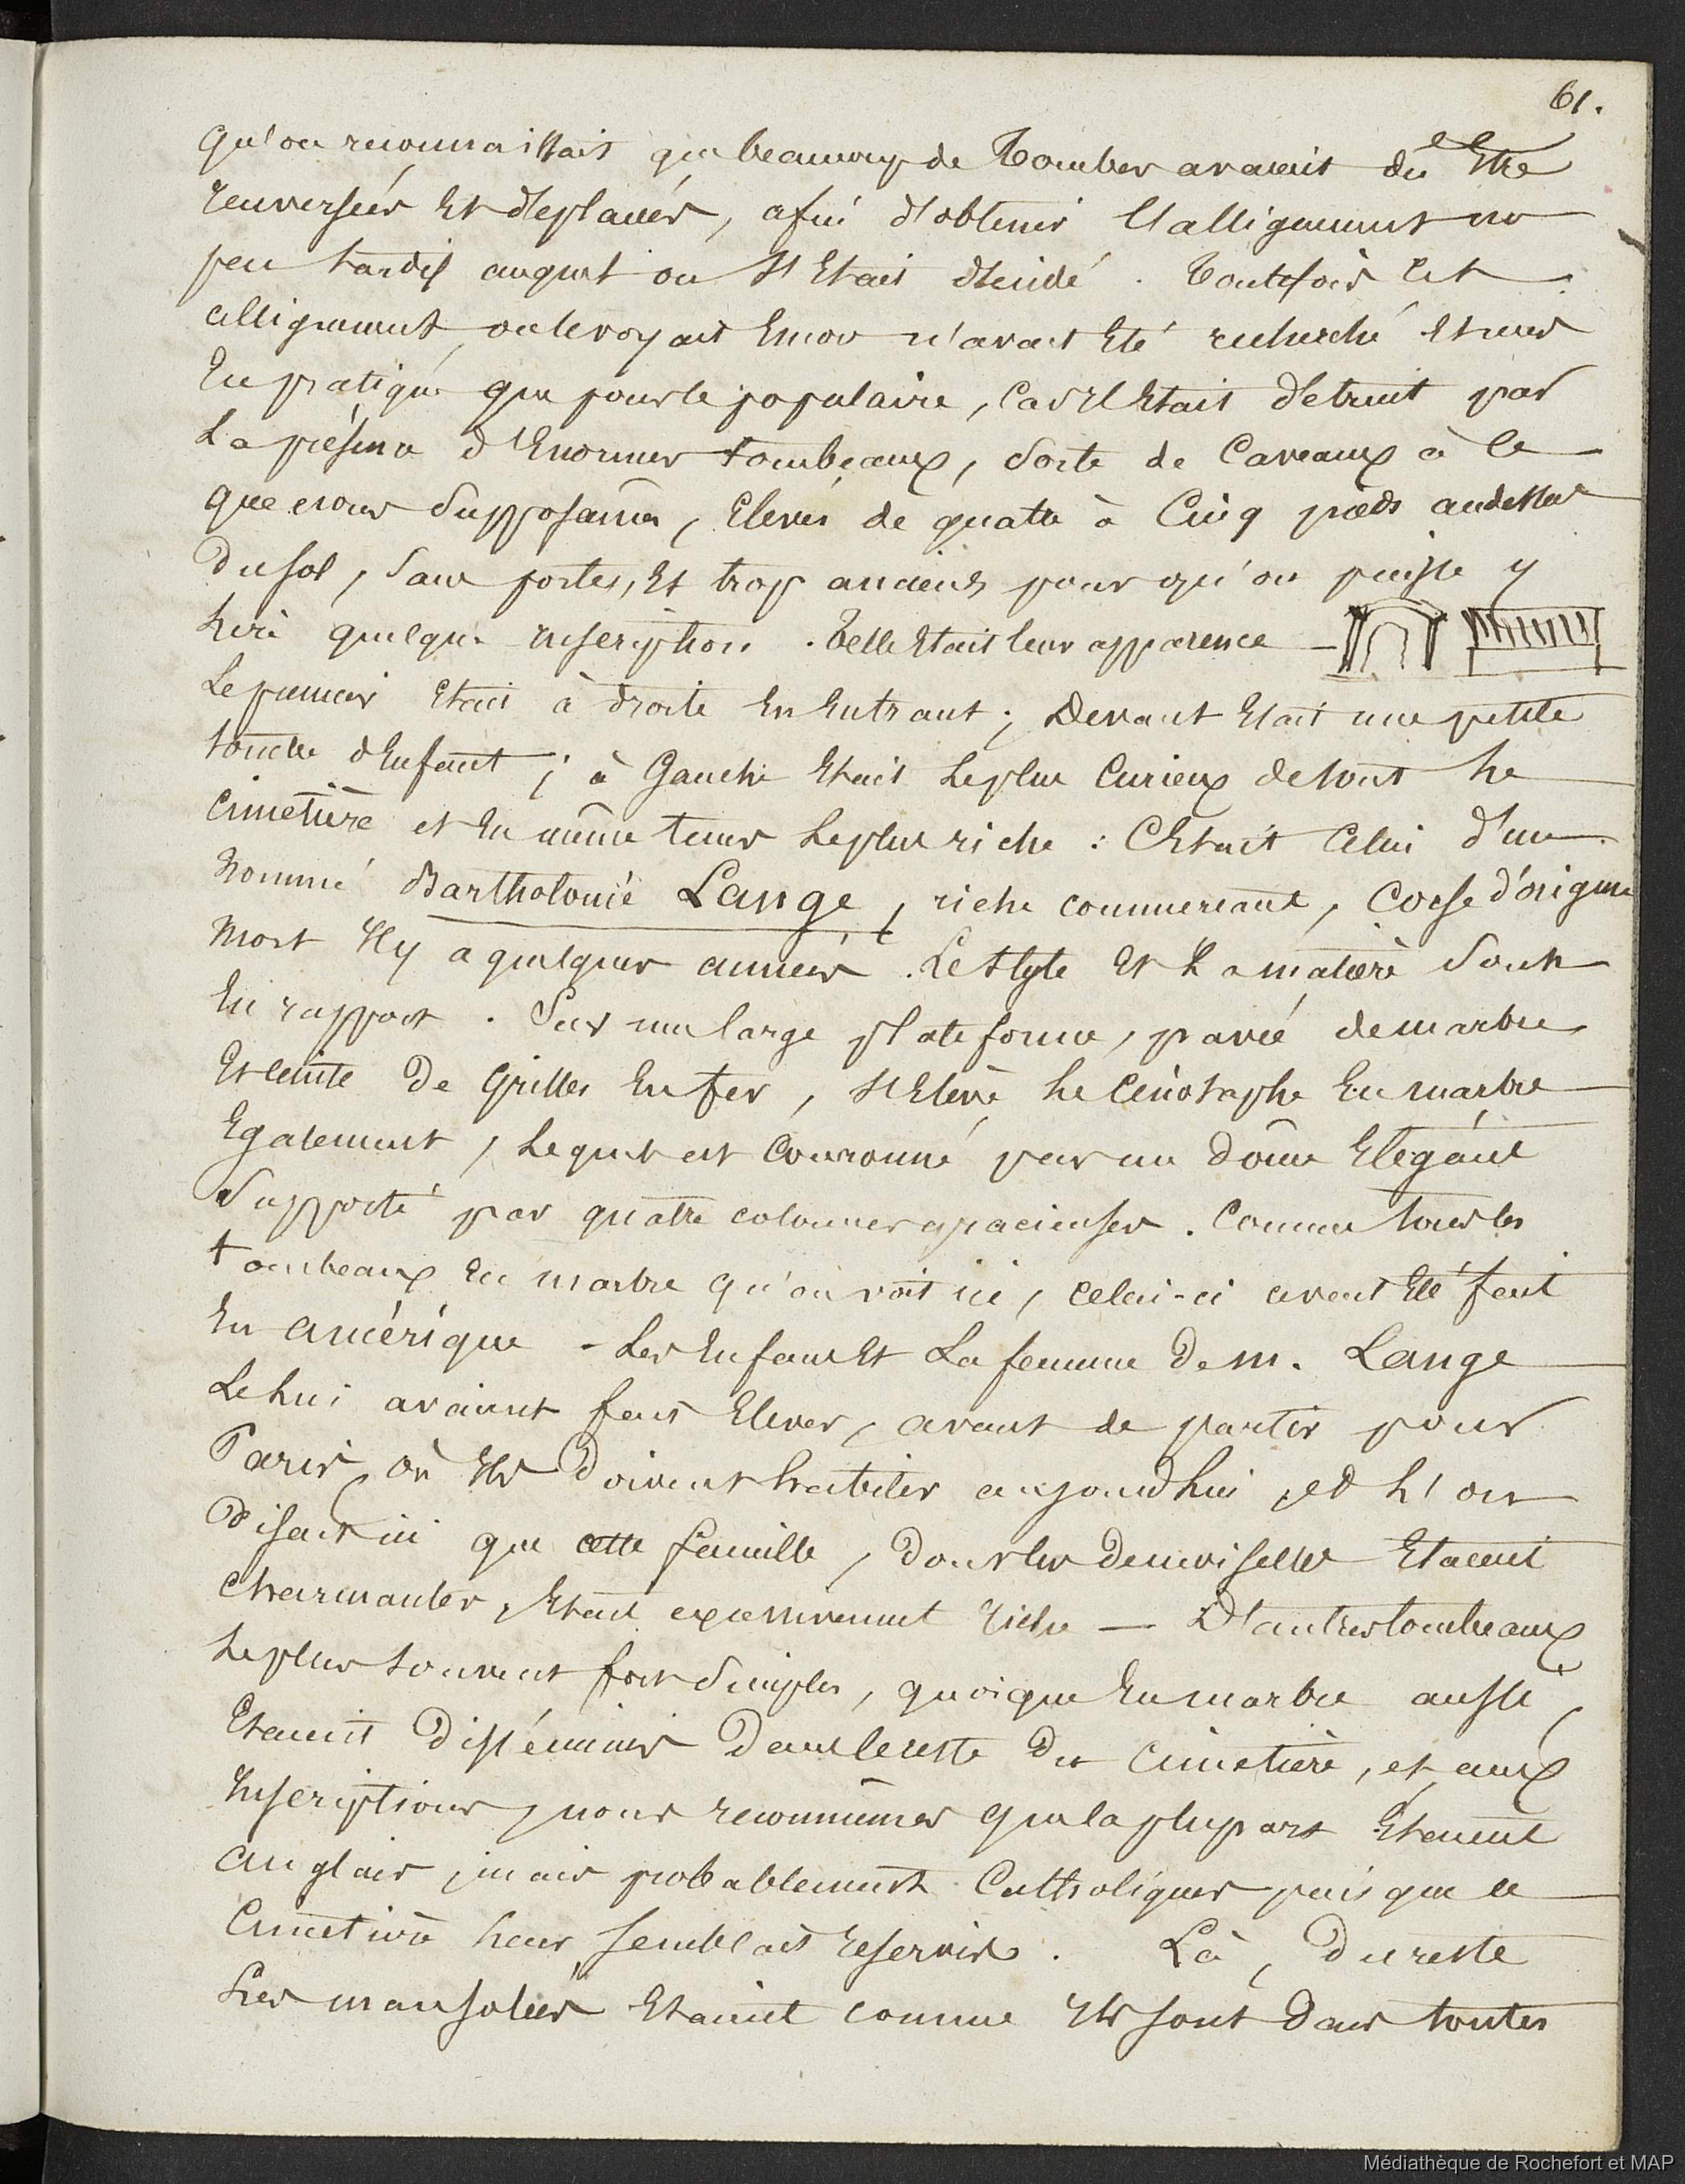 61.
qu'on reconnaissait que beaucoup de Tombes avaient dû Etre
renversées Et déplacées, afin d'obtenir l'allignement un
peu tardif auquel on s'Etait décidé. Toutefois cet
allignement, on le voyait Encor n'avait Eté recherché et mis
En pratique que pour le populaire, car il Etait détruit par
La présence d'Enormes tombeaux, sorte de Caveaux à ce
que nous supposâmes, Elevés de quatre à Cinq pieds audessus
du sol, sans portes, Et trop anciens pour qu'on puisse y
lire quelque inscription. Telle Etait leur apparence –
Le premier Etait à droite En Entrant; Devant Etait une petite
tombe d'Enfant; à Gauche Etait le plus Curieux de tout le
Cimetière et En même tems le plus riche : C'Etait Celui d'un
Nommé Bartholomé Lange, riche commercant, Corse d'origine
Mort Il y a quelques années. Le style Et La matière sont
En rapport. Sur une large plateforme, pavée de marbre
Et ceinte de Grilles En fer, s'Elève le Cénotaphe En marbre
Egalement, lequel est Couronné par un dôme Elégant
Supporté par quatre colonnes gracieuses. Comme tous les
tombeaux En marbre qu'on voit ici, celui-ci avait Eté fait
En Amérique – Les Enfans Et La femme De M. Lange
Le lui avaient fait Elever, avant de partir pour
Paris, où Ils Doivent habiter aujourdhui, et l'on
Disait ici que cette famille, dont les demoiselles Etaient
Charmantes, Etait excessivement riche — D'autres tombeaux
le plus souvent fort Simples, quoique En marbre aussi,
Etaient Disséminés Dans le reste Du Cimetière, et aux
Inscriptions, nous reconnûmes que la plupart Etaient
anglais, mais probablement Catholiques puisque ce
Cimetière leur semblait reservés. Là, Du reste
Les mausolées Etaient comme Ils sont Dans toutes
Médiathèque de Rochefort et MAP